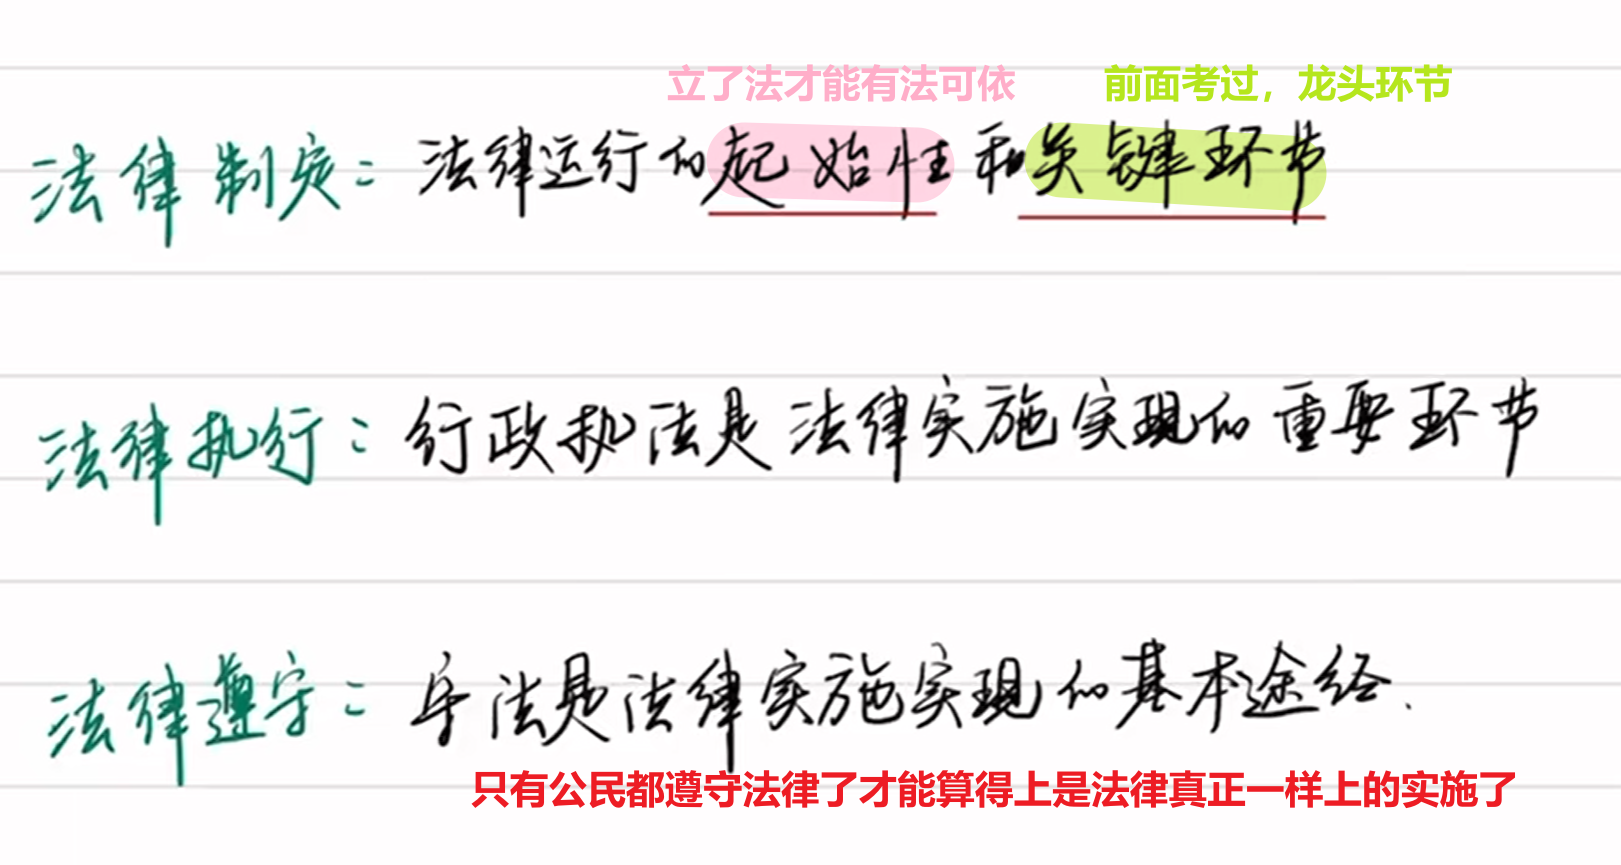 立了法才能有法可依 前面考过，龙头环节
法律制定：法律运行的起始性和关键环节
法律执行：行政执法是法律实施实现的重要环节
法律遵守：守法是法律实施实现的基本途经.
只有公民都遵守法律了才能算得上是法律真正一样上的实施了